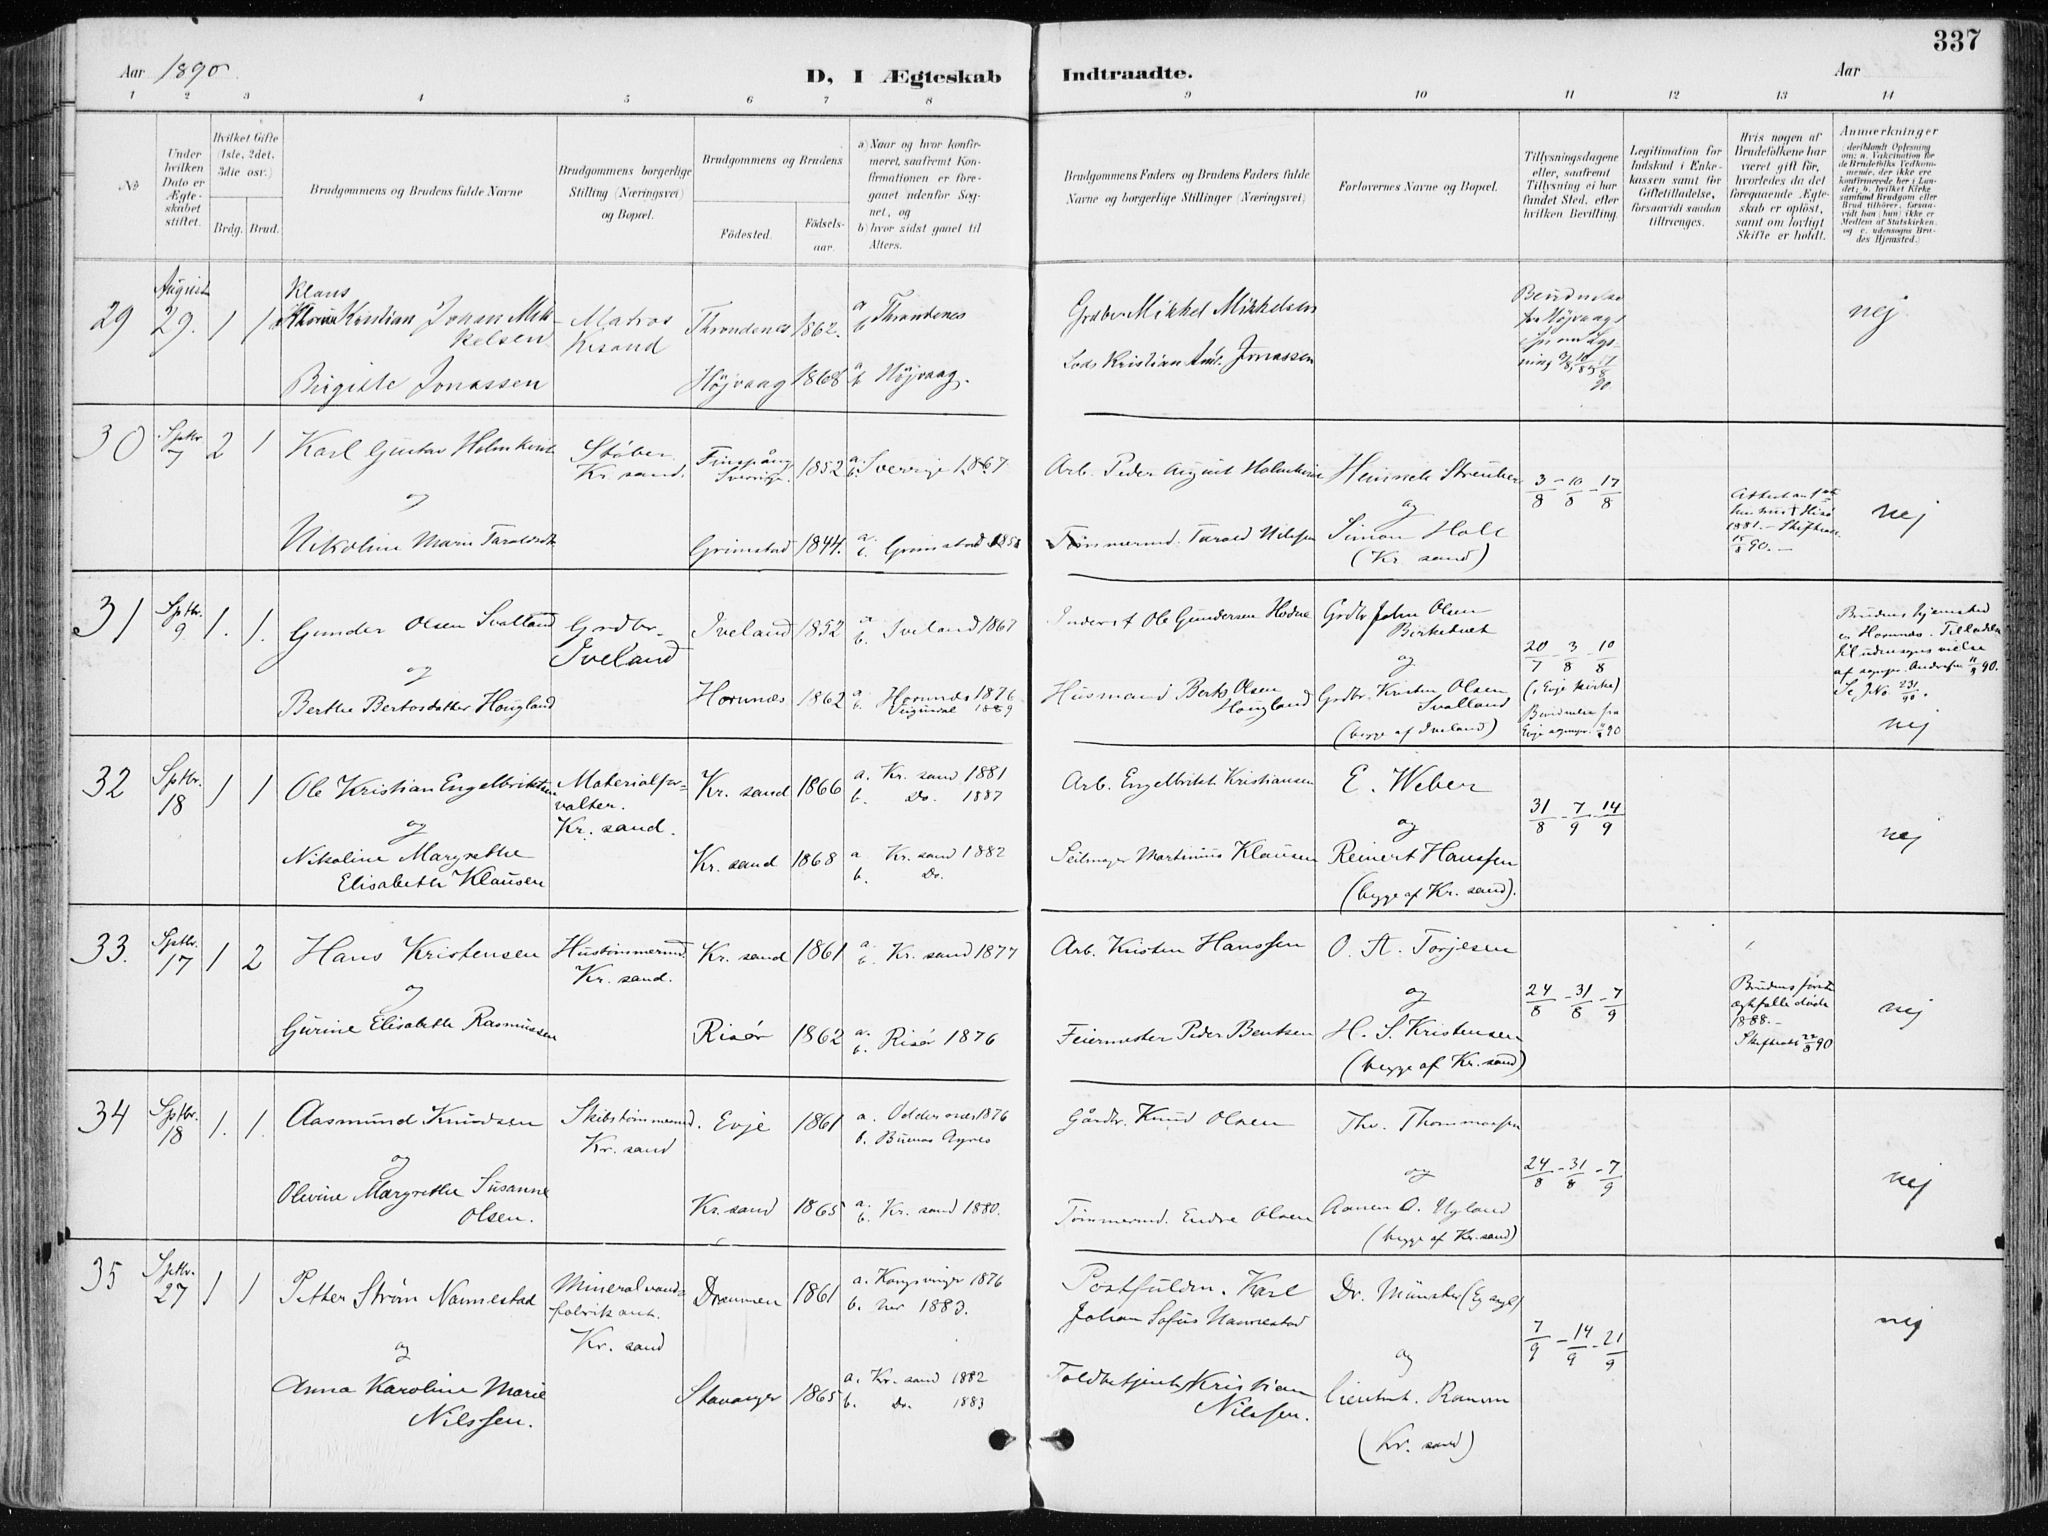 337
Aar 1890.
D, I Ægteskab
Indtraadte.
Aar
1 2 3 4 5 6 7 8 9 10 11 12 13 14
No
Under hvilken Dato er Ægteskabet stiftet.
Hvilket Gifte (1ste, 2det, 3die osv.)
Brdg. Brud.
Brudgommens og Brudens fulde Navne
Brudgommens borgerlige Stilling (Næringsvei) og Bopæl.
Brudgommens og Brudens
Födested.
Födselsaar.
a) Naar og hvor konfirmeret, saafremt Konfirmationen er foregaaet udenfor Sognet, og
b) hvor sidst gaaet til Alters.
Brudgommens Faders og Brudens Faders fulde Navne og borgerlige Stillinger (Næringsvei)
Forlovernes Navne og Bopæl.
Tillysningsdagene eller, saafremt Tillysning ei har fundet Sted, efter hvilken Bevilling.
Legitimation for Indskud i Enkekassen samt for Giftetilladelse, forsaavidt saadan tiltrænges.
Hvis nogen af Brudefolkene har været gift för, hvorledes da det foregaaende Ægteskab er oplöst, samt om lovligt Skifte er holdt.
Anmærkninger
29
August 29.
1 1
Klaus
Kristian Johan Mikkelsen
Matros
Krsand
Throndenes 1862.
a b Throndenes
Grdbr Mikkel Mikkelsen
nej
Birgitte Jonassen
Højvaag 1868
a b Højvaag.
Lods Kristian Jonassen
30
Sptbr. 7
2 1
Karl Gustav Holmkvist
Støber
Kr. sand.
Finspång, Sverrige.
1852
a. b. Sverrige 1867
Arb. Peder August Holmkvist
Heinrich Streuber
3/8 - 10/8 - 17/8
og
og
Nikoline Marie Taraldsdt
Grimstad 1844.
a. b. Grimstad
Tømmermd. Tarald Nilssen
Simon Holt
(Kr. sand)
1881. - Skifteatt.
15/8 90. -
nej
31
Sptbr. 9
1. 1.
Gunder Olsen Svalland
Grdbr.
Iveland
Iveland 1852
a. b. Iveland 1867
Inderst Ole Gundersen Hodne
Grdbr John Olsen
Birketveit
og
og
20/7 - 3/8 - 10/8
(i Evje Kirke)
Berthe Bertosdatter Hougland
Hornnes 1862
a. Hornnes 1876
b. Vegusdal 1889
Husmand Berto Olsen
Hougland
Grdbr. Kristen Olsen
Svalland
(begge af Iveland)
Brudens hjemsted
er Hornnes. Tilladelse
til udensogns vielse
Se J.No. 231/90.
nej
32
Sptbr. 18
1 1
Ole Kristian Engelbriktsen
Materialforvalter.
Kr. sand.
Kr. sand 1866
a. Kr. sand 1881
b. Do. 1887
Arb. Engelbrikt Kristiansen
E. Weber
31/8 - 7/9 - 14/9
og
og
nej
Nikoline Margrethe
Elisabeth Klausen
Kr. sand 1868
a. Kr. sand 1882
b. Do.
Seilmager Martinius Klausen
Reinert Hanssen
(begge af Kr. sand).
33.
Sptbr. 17
1 2
Hans Kristensen
Hustømmermd.
Kr. sand.
Kr. sand 1861
a. b. Kr. sand 1877
Arb. Kristen Hanssen
O. A. Torjesen
24/8 - 31/8 - 7/9
og
og
Gurine Elisabeth Rasmussen
Risør 1862
a. b. Risør 1876
Feiermester Peder Bentsen
H. S. Kristensen
(begge af Kr. sand)
Brudens første
døde
1888. -
Skifteatt 22/8 90
nej
34
Sptbr. 18
1. 1.
Aasmund Knudsen
Skibstømmermd.
Kr. sand
Evje 1861
a. Oddernes 1876
b. Buenos Ayres
Gårdbr. Knud Olsen
Thv. Thommassen
24/8 - 31/8 - 7/9
og
og
nej
Olevine Margrethe Susanne
Olsen.
Kr. sand 1865
a. b. Kr. sand 1880.
Tømmermd. Endre Olsen
Aanen O. Ugland
(begge af Kr. sand)
35
Sptbr. 27
1 1
Petter Strøm Nannestad
Mineralvandfabrikant.
Kr. sand
Drammen 1861
a. Kongsvinger 1876
b. her 1883.
Postfuldm. Karl
Johan Sofus Nannestad
Dr. Münster
7/9 - 14/9 - 21/9
og
og
nej
Anna Karoline Marie
Nilssen.
Stavanger 1865
a. Kr. sand 1882
b. Do. 1883
Toldbetjent Kristian
Nilssen.
(Kr. sand)